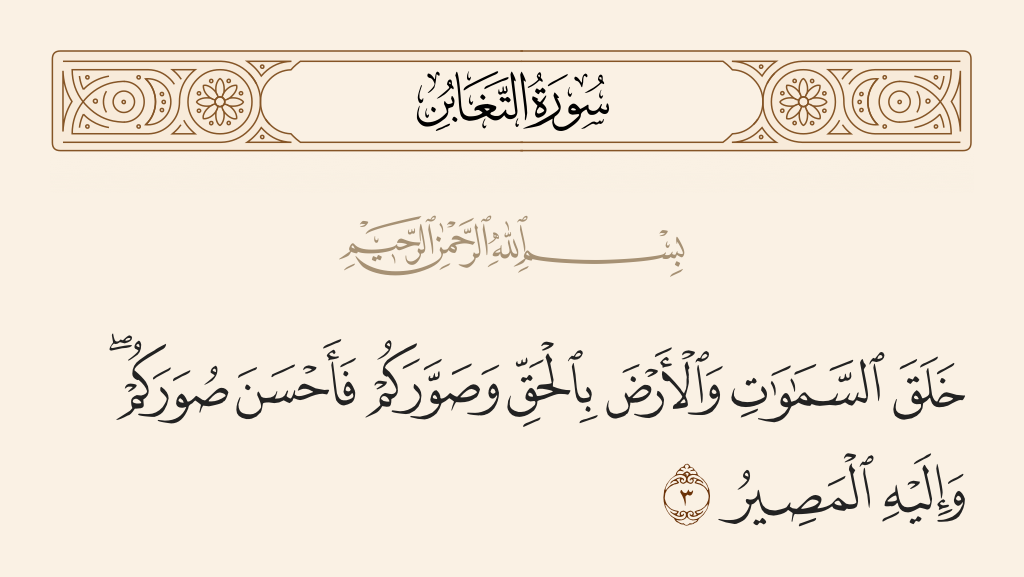 سُورَةُ التَّغَابُنِ
بِسْمِ ٱللَّهِ ٱلرَّحْمَٰنِ ٱلرَّحِيمِ
خَلَقَ ٱلسَّمَٰوَٰتِ وَٱلْأَرْضَ بِٱلْحَقِّ وَصَوَّرَكُمْ فَأَحْسَنَ صُوَرَكُمْ ۖ
وَإِلَيْهِ ٱلْمَصِيرُ ٣